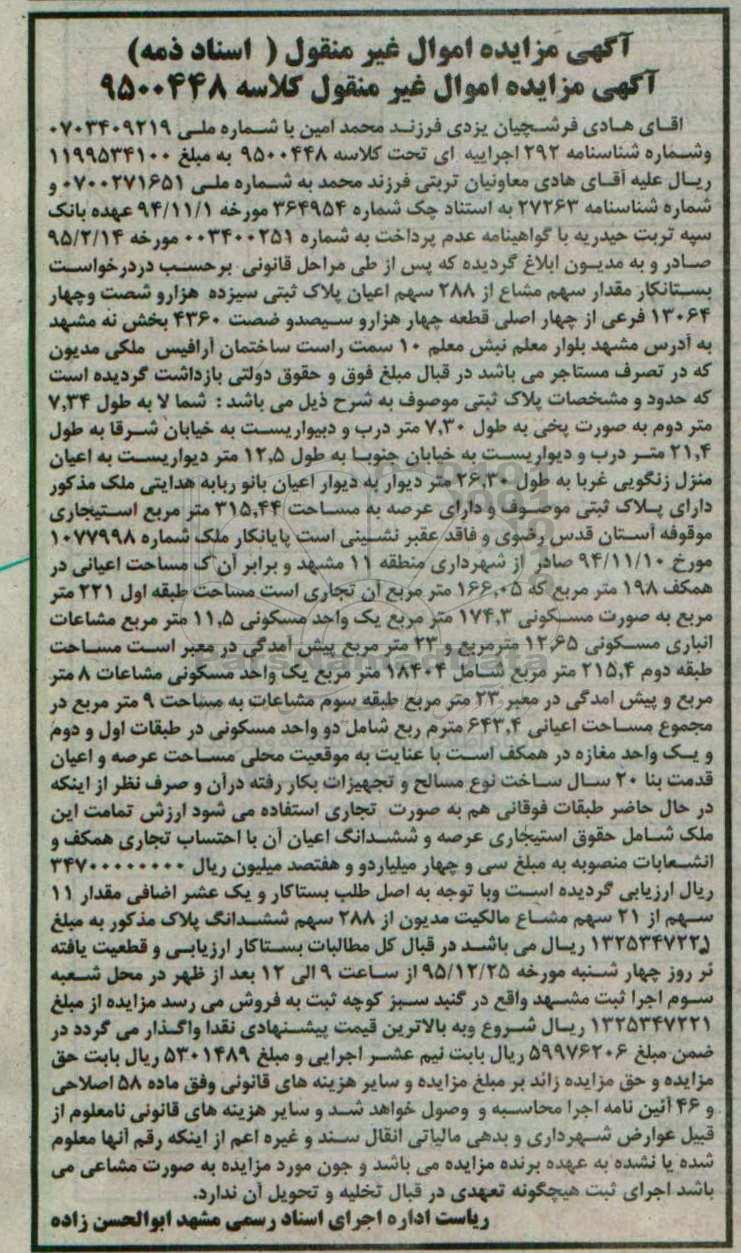 آگهی مزایده اموال غیر منقول ( اسناد ذمه)
آگهی مزایده اموال غیر منقول کلاسه ۹۵۰۰۴۴۸
اقـای هـادی فرشـچیان یزدی فرزنـد محمد امین با شـماره ملـی ۰۷۰۳۴۰۹۲۱۹
وشـماره شناسنامه ۲۹۲ اجراییه ای تحت کلاسه ۹۵۰۰۴۴۸ به مبلغ ۱۱۹۹۵۳۴۱۰۰
ریـال علیه آقـای هادی معاونیان تربتی فرزند محمد به شـماره ملـی ۰۷۰۰۲۷۱۶۵۱ و
شماره شناسنامه ۲۷۲۶۳ به استناد چک شماره ۳۶۴۹۵۴ مورخه ۹۴/۱۱/۱ عهده بانک
سپه تربت حیدریه با گواهینامه عدم پرداخت به شماره ۰۰۳۴۰۰۲۵۱ مورخه ۹۵/۲/۱۴
صـادر و به مدیـون ابلاغ گردیده که پس از طی مراحل قانونی برحسـب دردرخواسـت
بسـتانکار مقدار سهم مشاع از ۲۸۸ سهم اعیان پلاک ثبتی سیزده هزارو شصت وچهار
۱۳۰۶۴ فرعی از چهار اصلی قطعه چهار هزارو سـیصدو ضصت ۴۳۶۰ بخش نه مشهد
به آدرس مشهد بلوار معلم نبش معلم ۱۰ سمت راست ساختمان آرافیس ملکی مدیون
که در تصرف مستاجر می باشد در قبال مبلغ فوق و حقوق دولتی بازداشت گردیده است
که حدود و مشخصات پلاک ثبتی موصوف به شرح ذیل می باشد : شما لا به طول ۷,۳۴
متر دوم به صورت پخی به طول ۷,۳۰ متر درب و دیواریسـت به خیابان شـرقا به طول
۲۱,۴ متـر درب و دیواریسـت به خیابان جنوبـا به طول ۱۲,۵ متر دیواریسـت به اعیان
منزل زنگویی غربا به طول ۲۶,۳۰ متر دیوار به دیوار اعیان بانو ربابه هدایتی ملک مذکور
دارای پـلاک ثبتی موصـوف و دارای عرصه به مسـاحت ۳۱۵,۴۴ متر مربع اسـتیجاری
موقوفه آستان قدس رضوی و فاقد عقبر نشـینی است پایانکار ملک شماره ۱۰۷۷۹۹۸
مورخ ۹۴/۱۱/۱۰ صادر از شهرداری منطقه ۱۱ مشهد و برابر آن ک مساحت اعیانی در
همکف ۱۹۸ متر مربع که ۱۶۶,۰۵ متر مربع آن تجاری است مساحت طبقه اول ۲۲۱ متر
مربع به صورت مسـکونی ۱۷۴,۳ متر مربع یک واحد مسکونی ۱۱,۵ متر مربع مشاعات
انباری مسـکونی ۱۲,۶۵ مترمربع و ۲۳ متر مربع پیش آمدگی در معبر اسـت مسـاحت
طبقه دوم ۲۱۵,۴ متر مربع شـامل ۱۸۴۰۴ متر مربع یک واحد مسکونی مشاعات ۸ متر
مربع و پیش امدگی در معبر ۲۳ متر مربع طبقه سوم مشاعات به مساحت ۹ متر مربع در
مجموع مسـاحت اعیانی ۶۴۳,۴ مترم ربع شامل دو واحد مسکونی در طبقات اول و دوم
و یـک واحد مغازه در همکف اسـت با عنایت به موقعیت محلی مسـاحت عرصه و اعیان
قدمت بنا ۲۰ سـال سـاخت نوع مسالح و تجهیزات بکار رفته درآن و صرف نظر از اینکه
در حال حاضر طبقات فوقانی هم به صورت تجاری استفاده می شود ارزش تمامت این
ملک شـامل حقوق استیجاری عرصه و ششـدانگ اعیان آن با احتساب تجاری همکف و
انشـعابات منصوبه به مبلغ سی و چهار میلیاردو و هفتصد میلیون ریال ۳۴۷۰۰۰۰۰۰۰۰
ریال ارزیابی گردیده اسـت وبا توجه به اصل طلب بستاکار و یک عشر اضافی مقدار ۱۱
سـهم از ۲۱ سهم مشـاع مالکیت مدیون از ۲۸۸ سهم ششـدانگ پلاک مذکور به مبلغ
۱۳۲۵۳۴۷۲۲۱ ریـال می باشـد در قبال کل مطالبات بسـتاکار ارزیابـی و قطعیت یافته
ئر روز چهار شـنبه مورخه ۹۵/۱۲/۲۵ از سـاعت ۹ الی ۱۲ بعد از ظهر در محل شـعبه
سـوم اجرا ثبت مشـهد واقع در گنبد سـبز کوچه ثبت به فروش می رسد مزایده از مبلغ
۱۳۲۵۳۴۷۲۲۱ ریـال شـروع وبه بالاترین قیمت پیشـنهادی نقدا واگـذار می گردد در
ضمن مبلغ ۵۹۹۷۶۲۰۶ ریال بابت نیم عشـر اجرایی و مبلغ ۵۳۰۱۴۸۹ ریال بابت حق
مزایده و حق مزایده زائد بر مبلغ مزایده و سایر هزینه های قانونی وفق ماده ۵۸ اصلاحی
و ۴۶ آئین نامه اجرا محاسـبه و وصول خواهد شـد و سـایر هزینه های قانونی نامعلوم از
قبیل عوارض شـهرداری و بدهی مالیاتی انقال سـند و غیره اعم از اینکه رقم آنها معلوم
شده یا نشده به عهده برنده مزایده می باشد و چون مورد مزایده به صورت مشاعی می
باشد اجرای ثبت هیچگونه تعهدی در قبال تخلیه و تحویل آن ندارد.
ریاست اداره اجرای اسناد رسمی مشهد ابوالحسن زاده